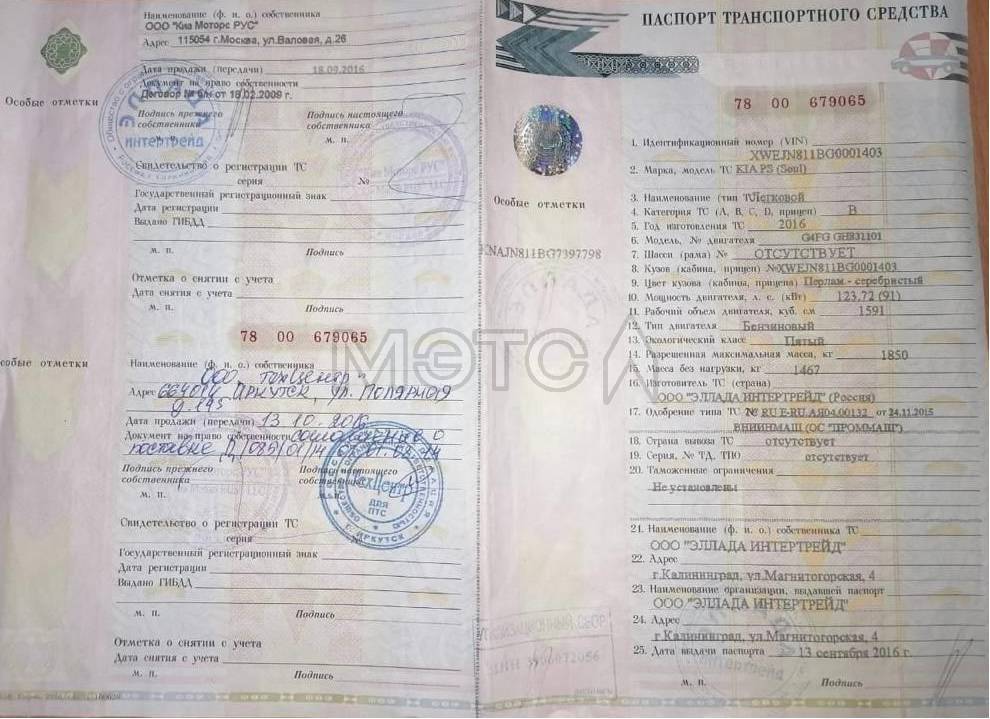 Наименование (ф. и. о.) собственника
ООО "Киа Моторс РУС"
Адрес 115054 г.Москва, ул.Валовая, д.26
Дата продажи (передачи) 18.09.2016
Документ на право собственности
Договор № б/н от 18.02.2009 г.
Подпись прежнего собственника
Подпись настоящего собственника
м. п.
м. п.
Свидетельство о регистрации ТС
серия №
Государственный регистрационный знак
Дата регистрации
Выдано ГИБДД
м. п. Подпись
Отметка о снятии с учета
Дата снятия с учета
м. п. Подпись
78 00 679065
Наименование (ф. и. о.) собственника
ООО ТехЦентр
Адрес 664014 Иркутск, ул. Полярная
д. 195
Дата продажи (передачи) 13.10.2016
Документ на право собственности соглашение о
поставке
Подпись прежнего собственника
Подпись настоящего собственника
м. п.
Свидетельство о регистрации ТС
серия
Государственный регистрационный знак
Дата регистрации
Выдано ГИБДД
м. п. Подпись
Отметка о снятии с учета
Дата снятия с учета
м. п. Подпись
Особые отметки
собые отметки
ЭЛЛАДА
интертрейд
ТехЦентр
для
ПТС
ИРКУТСК
МЭТС
ПАСПОРТ ТРАНСПОРТНОГО СРЕДСТВА
78 00 679065
Особые отметки
KNAJN811BG7397798
1. Идентификационный номер (VIN)
XWEJN811BG0001403
2. Марка, модель ТС KIA PS (Soul)
3. Наименование (тип ТС) Легковой
4. Категория ТС (А, В, С, D, прицеп) B
5. Год изготовления ТС 2016
6. Модель, № двигателя G4FG GH831101
7. Шасси (рама) № ОТСУТСТВУЕТ
8. Кузов (кабина, прицеп) № XWEJN811BG0001403
9. Цвет кузова (кабины, прицепа) Перлам - серебристый
10. Мощность двигателя, л. с. (кВт) 123,72 (91)
11. Рабочий объем двигателя, куб. см 1591
12. Тип двигателя Бензиновый
13. Экологический класс Пятый
14. Разрешенная максимальная масса, кг 1850
15. Масса без нагрузки, кг 1467
16. Изготовитель ТС (страна)
ООО "ЭЛЛАДА ИНТЕРТРЕЙД" (Россия)
17. Одобрение типа ТС № RU E-RU.АЯ04.00132 от 24.11.2015
ВНИИНМАШ (ОС "ПРОММАШ")
18. Страна вывоза ТС отсутствует
19. Серия, № ТД, ТПО отсутствует
20. Таможенные ограничения
Не установлены
21. Наименование (ф. и. о.) собственника ТС
ООО "ЭЛЛАДА ИНТЕРТРЕЙД"
22. Адрес
г.Калининград, ул.Магнитогорская, 4
23. Наименование организации, выдавшей паспорт
ООО "ЭЛЛАДА ИНТЕРТРЕЙД"
24. Адрес
г.Калининград, ул.Магнитогорская, 4
25. Дата выдачи паспорта 13 сентября 2016 г.
м. п. Подпись